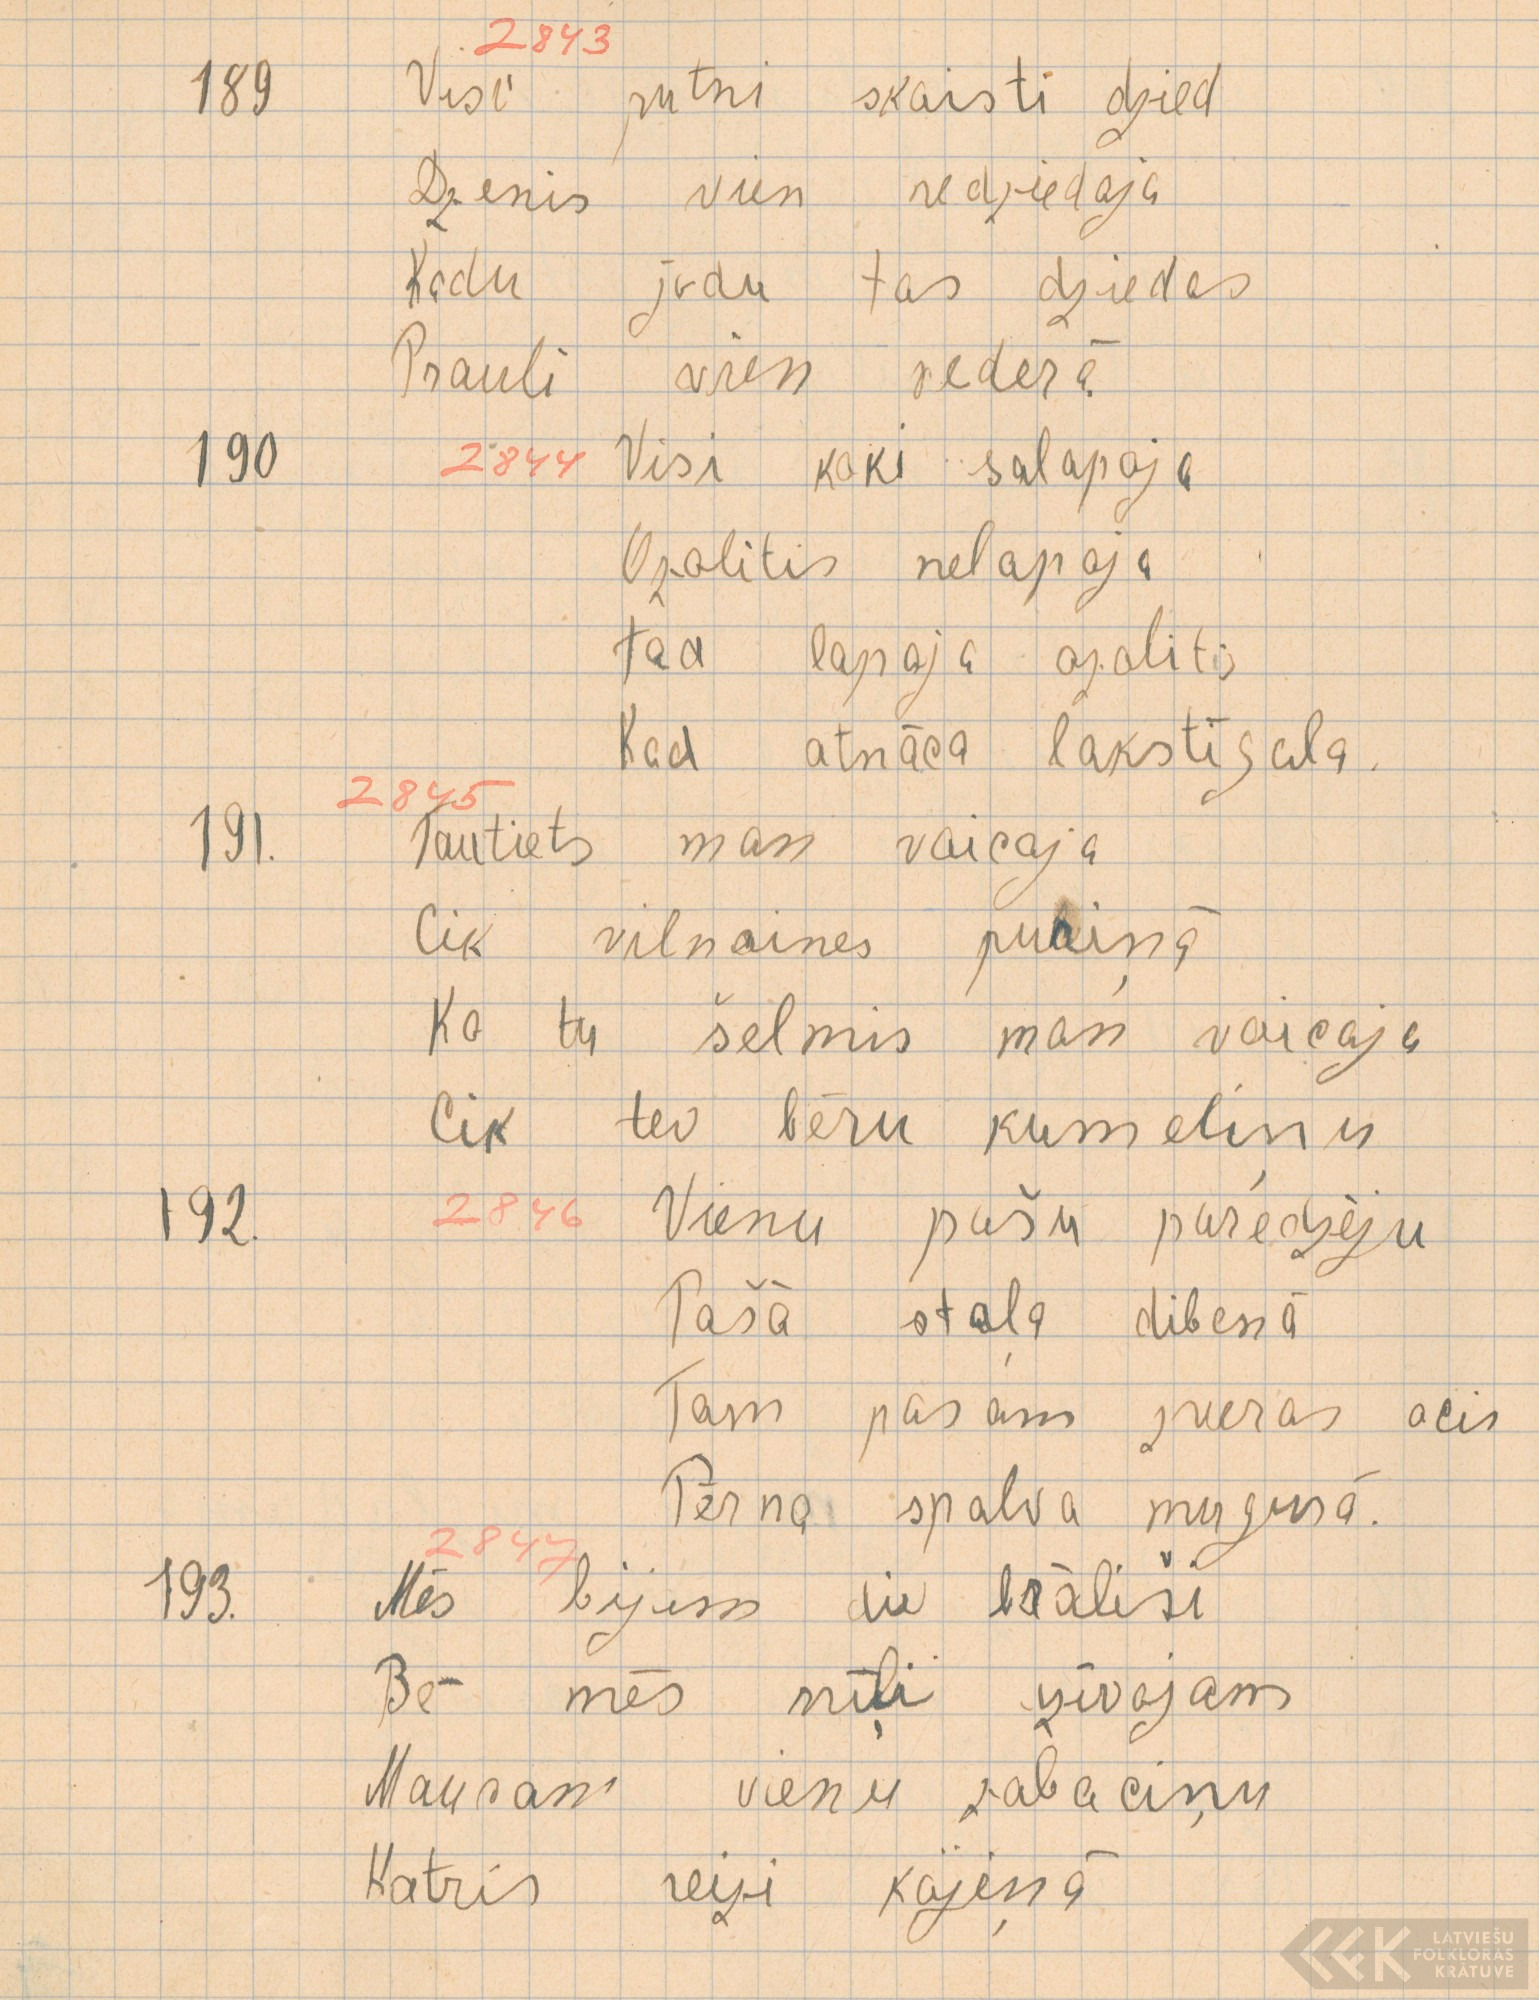 2843
189 Visi putni skaisti dzied
Dzenis vien nedziedaja
Kadu jodu tas dziedas
Prauli vien vederā.
190 2844 Visi koki salapoja
Ozolitis nelapoja
tad lapoja ozolitis
Kad atnāca lakstīgala.
2845
191. Tautiets man vaicaja
Cik vilnaines puriņā
Ko tu šelmis man vaicaja
Cik tev bēru kumeliņu
192. 2846 Vienu pašu paredzēju
Pašā staļa dibenā
Tam pašam zveras acis
Pērna spalva mugurā.
2847
193. Mēs bijem div brāliši
Be mēs mīļi zīvojam
Maucam vienu zabaciņu
Katris reizi kājiņā
LATVIEŠU
FOLKLORAS
KRĀTUVE